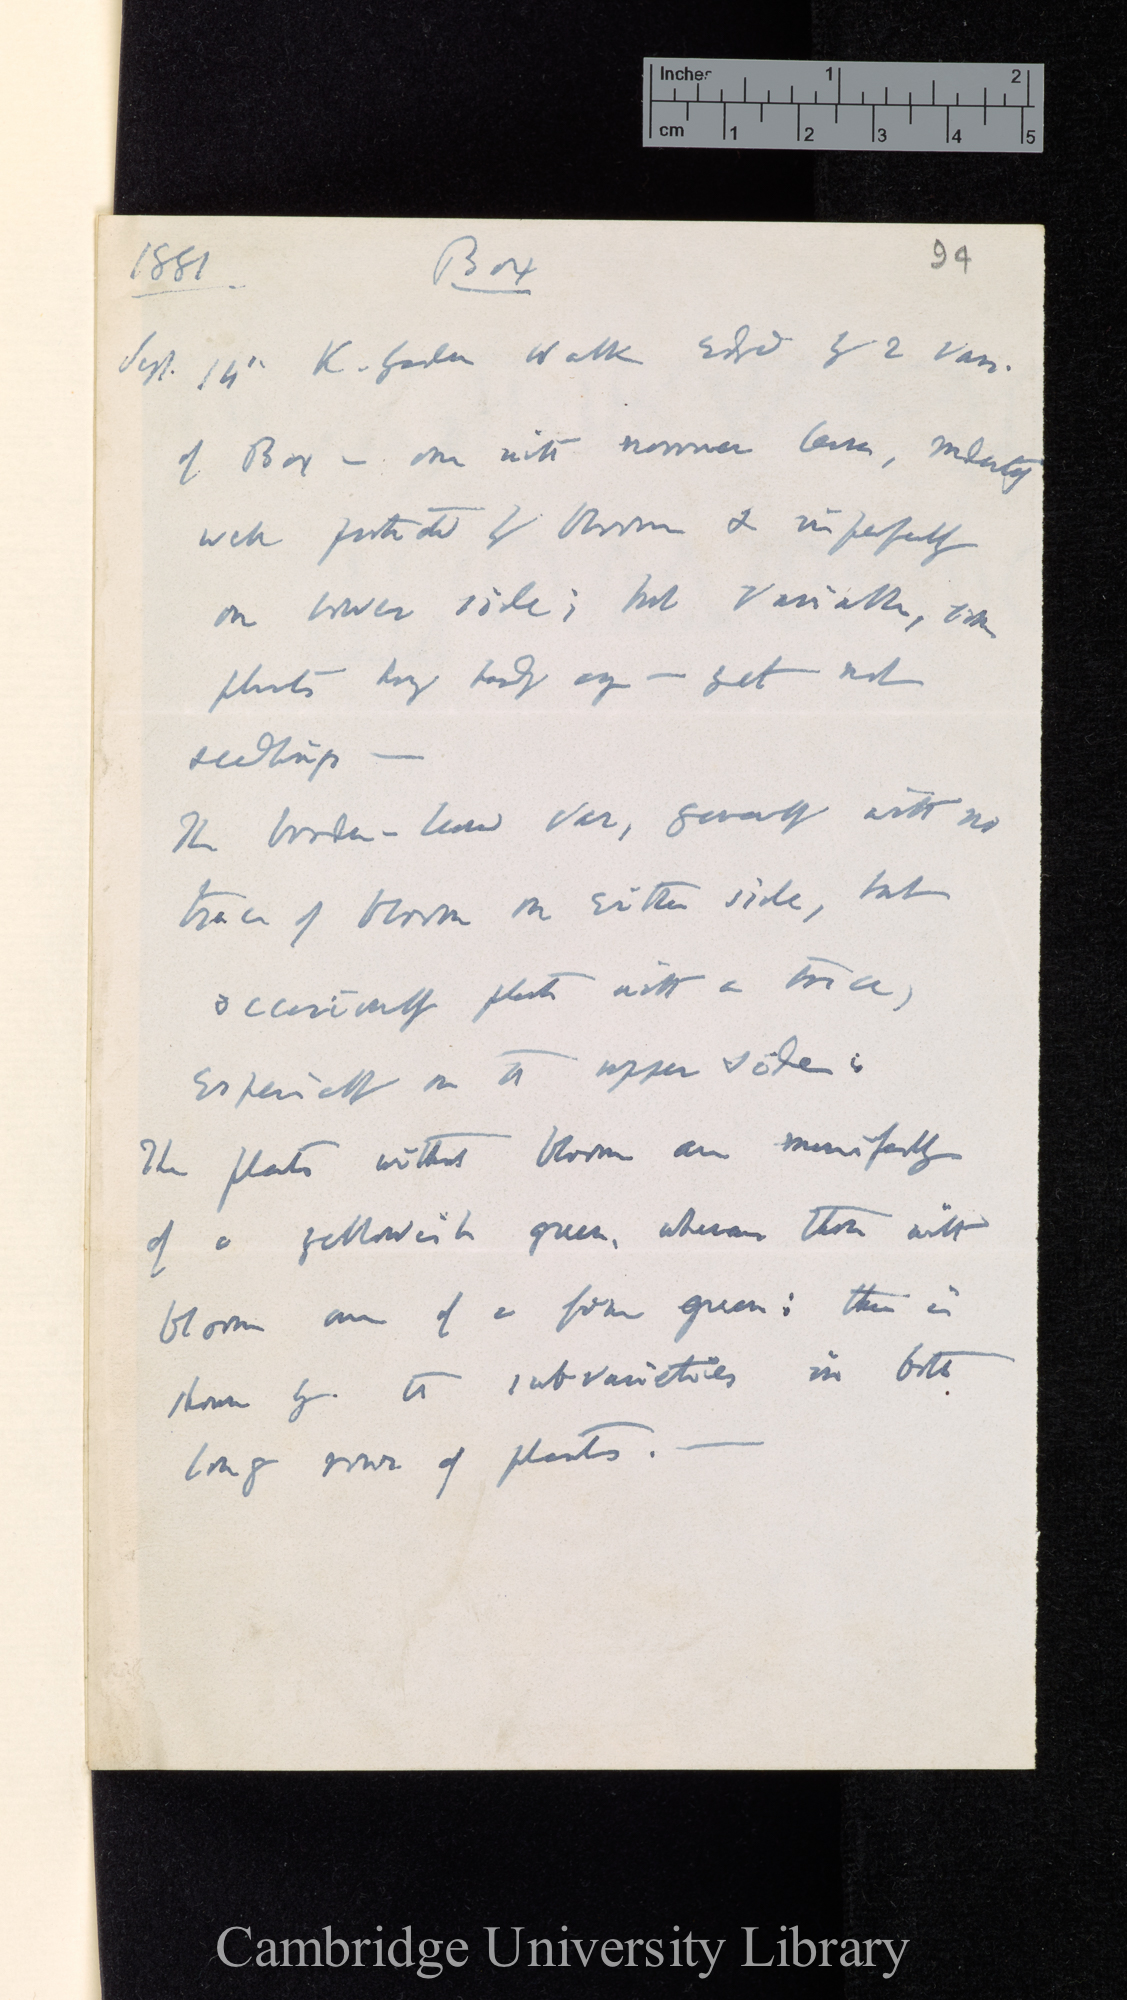 Inches 1 2
cm 1 2 3 4 5
94
1881 Box
Sept. 14th K. Garden Walk edged by 2 vars.
of Box — one with narrower leaves, moderately
well protected by bloom & imperfectly
on lower side; but variable, some
plants having hardly any — yet not
seedlings —
The broader-leaved var, generally with no
trace of bloom on either side, but
occasionally plants with a trace,
especially on the upper side:
The plants without bloom are manifestly
of a yellowish green, whereas those with
bloom are of a finer green: this is
shown by the sub-varieties in both
long rows of plants. —
Cambridge University Library